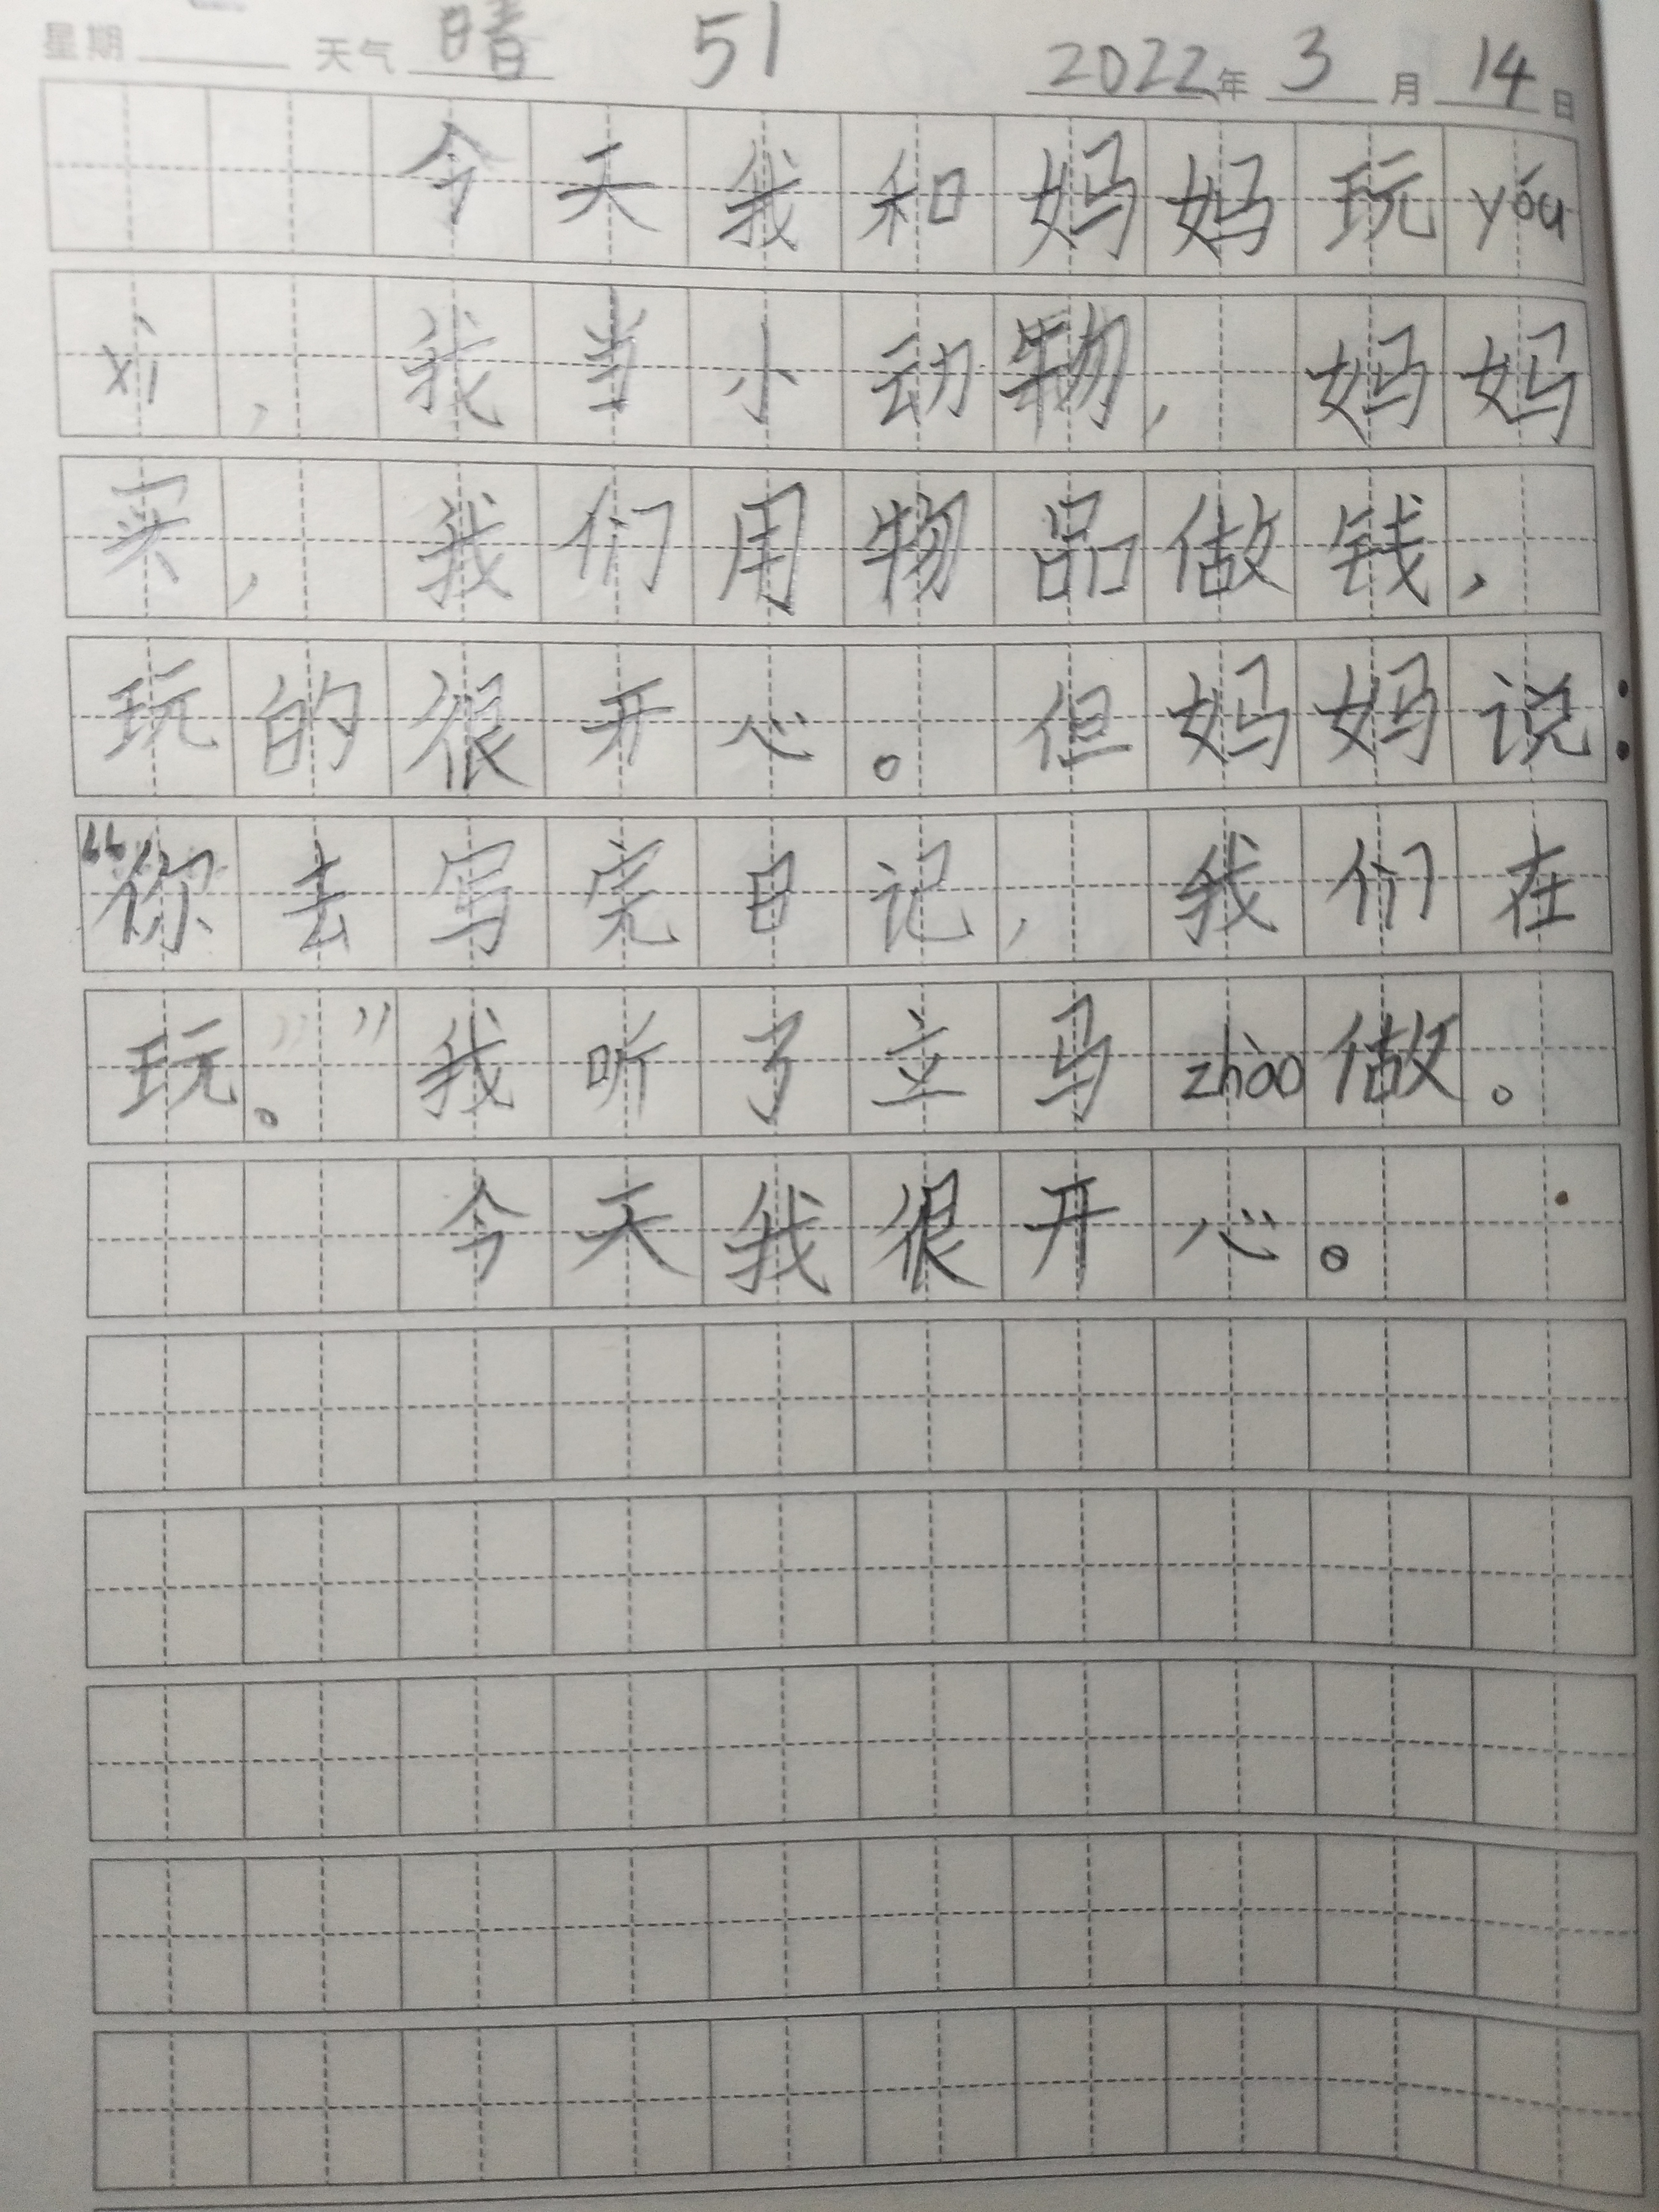 星期 天气 晴 51 2022年 3月 14日
今天我和妈妈玩yóu
xì，我当小动物，妈妈
买，我们用物品做钱，
玩的很开心。但妈妈说：
“你去写完日记，我们在
玩。”我听了立马zhào做。
今天我很开心。